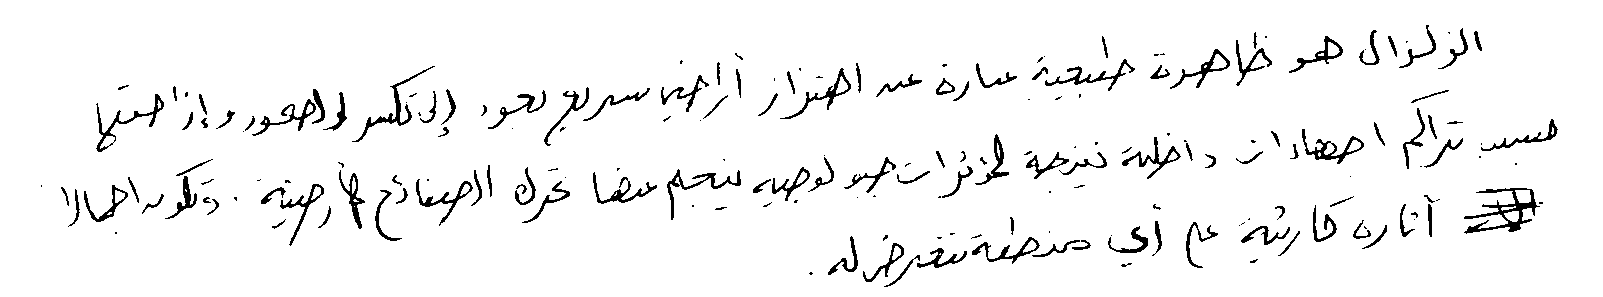 الزلزال هو ظاهرة طبيعية عبارة عن اهتزاز أراضي سريع يعود إلى تكسر الصخور وإزاحتها
بسبب تراكم اجهادات داخلية نتيجة لمؤثرات جيولوجية ينجم عنها تحرك الصفائح الأرضية. وتكون اجمالا
آثاره كارثية على أي منطقة تتعرض له.